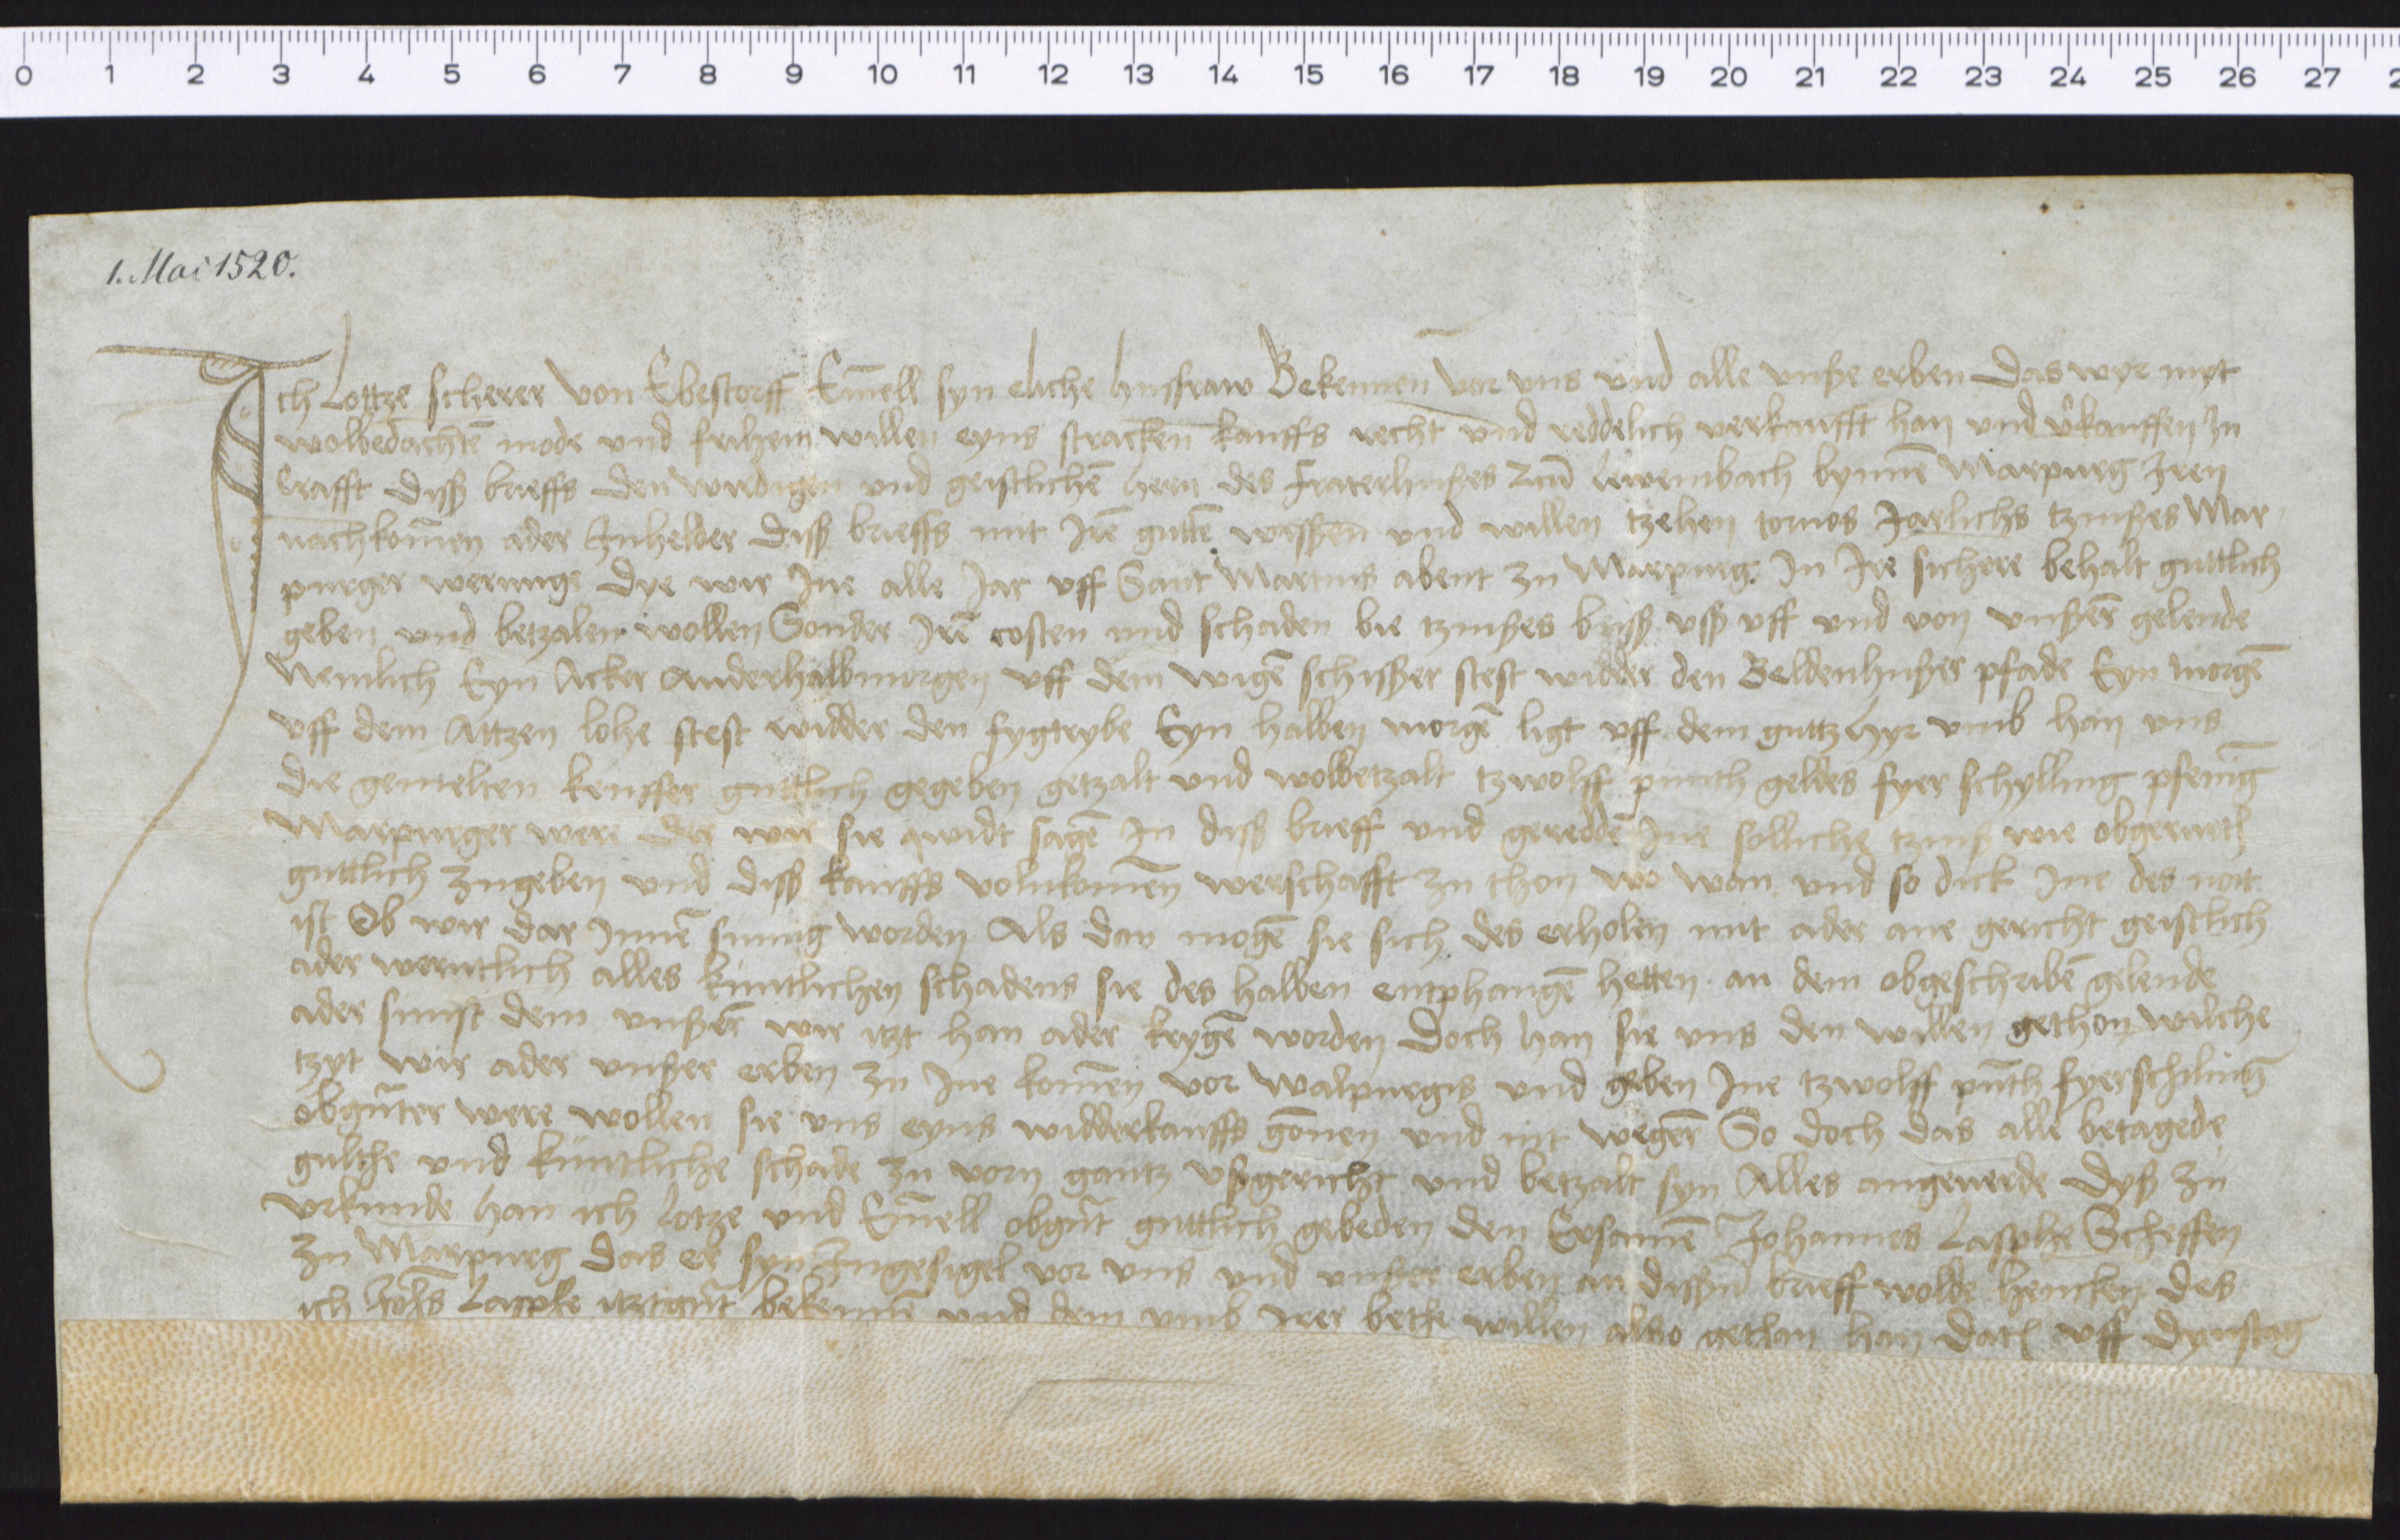 0 1 2 3 4 5 6 7 8 9 10 11 12 13 14 15 16 17 18 19 20 21 22 23 24 25 26 27 2
1. Mai 1520.
Ich Lottze scherer von Ebestorff Em̄ell syn eliche husfraw Bekennen vor vns vnd alle vnße erben das wyr myt
wolbedachtē mode vnd frihem willen eyns stracken kauffs recht vnd reddelich verkaufft han vnd v̂kauffen Jn
krafft diß brieffs den wirdigen vnd geistlichē hern des fraterhußes Zcū lewembach bynnē Marpurg Jren
nachkom̄en ader Jnhelder diß brieffs mit Jrē gutē wissen vnd willen tzehen tornos Jarlichs tzinßes Mar
purger werunge dye wir Jne alle Jar vff Sant Martins abent zu Marpurg Jn Jre sichere behalt guttlich
geben vnd betzalen wollen Sonder Jrē costen vnd schaden bie tzinßes buß vß vff vnd von vnßerē gelende
Nemlich Eyn Acker Anderhalbmorgen vff dem wigē schißer stest widder den Beldenhußer pfade Eyn morgē
vff dem Attzen lohe stest widder den fygtrybe Eyn halben morgē ligt vff dem guttz hyr vmb han vns
die gemelten keuffer guttlich gegeben getzalt vnd wolbetzalt tzwolff punth geldes fyer schylling pfenig
Marpurger were der wir sie qwidt sagē Jn diß brieff vnd gereddē Jne solliche tzinß wie obgerurth
guttlich zugeben vnd diß kauffs volnkomen werschafft zu thon wo wan vnd so dick Jne des nott
ist Ob wir dar Jnnē sumig worden Als dan mogē sie sich des erholen mit ader ane gericht geistlich
ader werntlich alles kuntlichen schadens sie des halben entphangē hetten an dem obgeschribē gelende
ader sunst dem vnßerē wir itzt han ader krygē worden Doch han sie vns den willen gethon wilche
tzyt wir ader vnßer erben zu Jne komen vor walpurgis vnd geben Jne tzwolff pūth fyerschiling
obgūter were wollen sie vns eyns widderkauffs gōnen vnd nit wegerē So doch das alle betagede
gulthe vnd kuntliche schade zu vorn gantz vßgericht vnd betzalt syn Alles angeuerde Dyß zu
vrkunde han ich Lotze vnd Em̄ell obgūt guttlich gebeden den Ersamē Johannes Lasphe Scheffen
zu Marpurg das er syn Jngesigel vor vns vnd vnßer erben an dißen brieff wolde hencken des
ich Johs Lasphe itztgūt bekennē vnd dem vmb irer bethe willen also gethan han Dat vff Dynstag